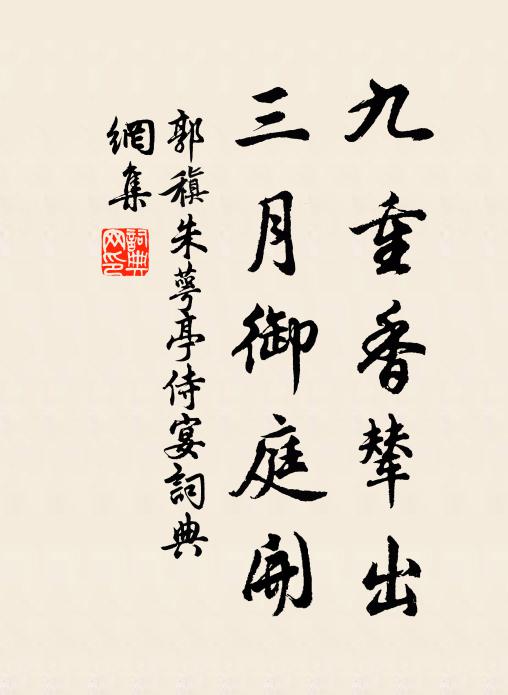 九重香輦出
三月御庭開
郭稹朱萼亭侍宴詞典
網集
詞典网印